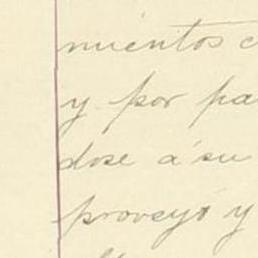 mientos c
y por pa
dose á su
proveyó y